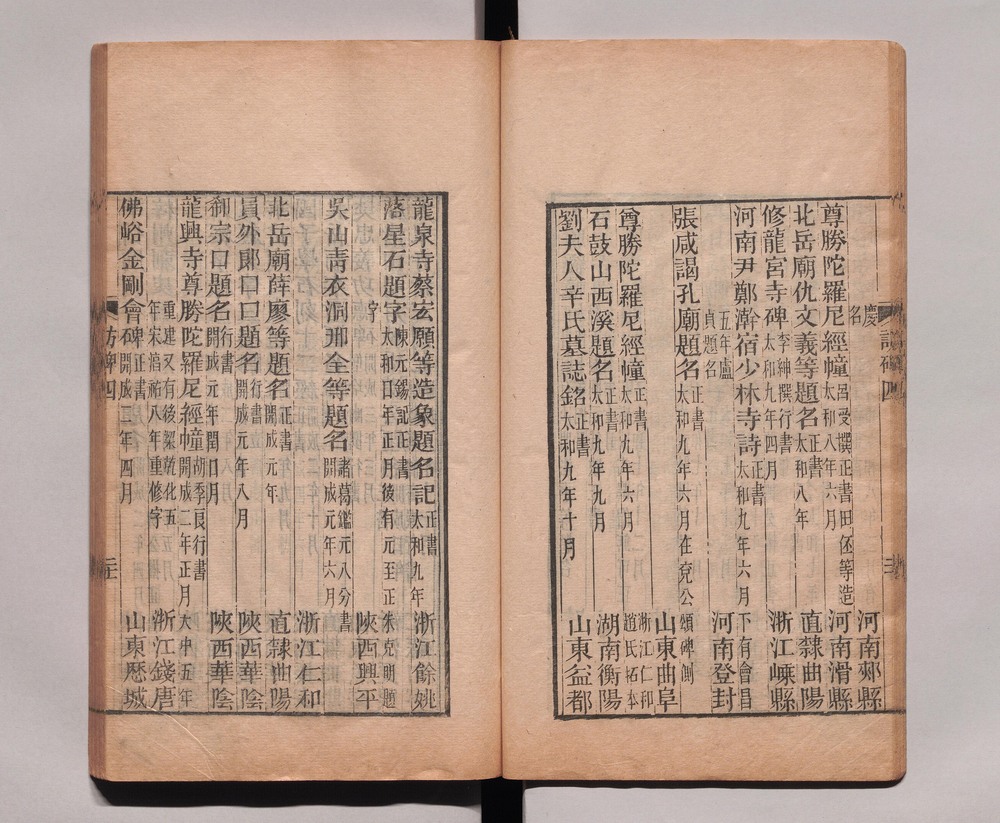 慶 河南郟縣
名
尊勝陀羅尼經幢 呂受撰正書田伾等造 太和八年六月 河南滑縣
北岳廟仇文義等題名 正書 太和八年 直隸曲陽
修龍宮寺碑 李紳撰行書 太和九年四月 浙江嵊縣
河南尹鄭澣宿少林寺詩 正書 太和九年六月 下有會昌
五年盧貞題名 河南登封
張咸謁孔廟題名 正書 太和九年六月在兗公頌碑側 山東曲阜
尊勝陀羅尼經幢 正書 太和九年六月 浙江仁和趙氏拓本
石鼓山西溪題名 正書 太和九年九月 湖南衡陽
劉夫人辛氏墓誌銘 正書 太和九年十月 山東益都
訪碑四
三
龍泉寺蔡宏願等造象題名記 正書 太和九年 浙江餘姚
落星石題字 陳元錫記正書 太和口年口月後有元至正朱伯明題
字 陝西興平
吳山青衣洞邢全等題名 諸葛鑑元八分書 開成元年六月 浙江仁和
北岳廟薛廖等題名 正書 開成元年 直隸曲陽
員外郎口口題名 行書 開成元年八月 陝西華陰
御宗口題名 行書 開成元年閏口月 陝西華陰
龍興寺尊勝陀羅尼經幢 胡季良行書 開成二年正月大中五年
重建又有後梁乾化五年宋 祐八年重修字 浙江錢唐
佛峪金剛會碑 正書 開成二年四月 山東歷城
訪碑四